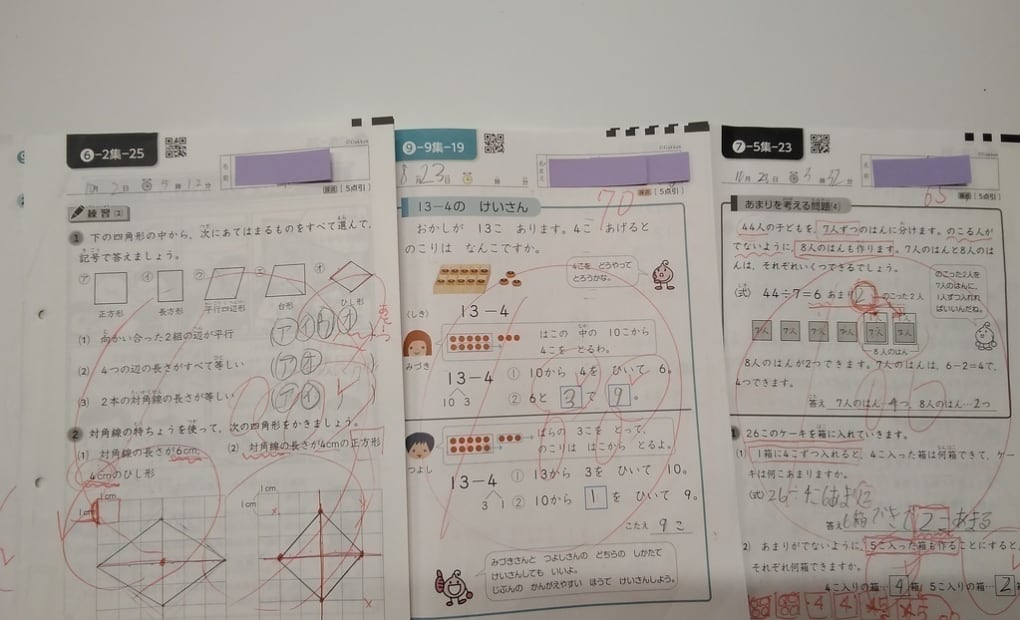 6-2集-25
名前
©Gakken
10月2日 時12分
採点 [5点引]
練習 2
1 下の四角形の中から，次にあてはまるものをすべて選んで，
記号で答えましょう。
ア イ ウ エ オ
正方形 長方形 平行四辺形 台形 ひし形
(1) 向かい合った2組の辺が平行
ア イ ウ オ
(2) 4つの辺の長さがすべて等しい
ア オ
(3) 2本の対角線の長さが等しい
ア イ
2 対角線の特ちょうを使って，次の四角形をかきましょう。
(1) 対角線の長さが6cm，
4cmのひし形
(2) 対角線の長さが4cmの正方形
1cm
1cm
1cm
1cm
9-9集-19
©Gakken
8月23日 時 分
採点 [5点引]
70
13-4の けいさん
おかしが 13こ あります。4こ あげると
のこりは なんこですか。
4こを どうやって
とろうかな。
(しき) 13-4
みづき
はこの 中の 10こから
4こを とるわ。
13-4
10 3
① 10から 4を ひいて 6。
② 6と 3で 9。
つよし
ばらの 3こを とって，
のこりは はこから とるよ。
13-4
3 1
① 13から 3を ひいて 10。
② 10から 1を ひいて 9。
こたえ 9こ
みづきさんと つよしさんの どちらの しかたで
けいさんしても いいよ。
じぶんの かんがえやすい ほうで けいさんしよう。
7-5集-23
名前
©Gakken
時32分
65
採点 [5点引]
あまりを考える問題④
44人の子どもを，7人ずつのはんに分けます。のこる人が
でないように，8人のはんも作ります。7人のはんと8人のは
んは，それぞれいくつできるでしょう。
のこった2人を
7人のはんに，
1人ずつ入れれ
ばいいんだね。
(式) 44÷7=6 あまり2 のこった2人
7人 7人 7人 7人 7人 7人
8人のはん
8人のはんが2つできます。7人のはんは，6-2=4で，
4つできます。
答え 7人のはん…4つ，8人のはん…2つ
1 26このケーキを箱に入れていきます。
(1) 1箱に4こずつ入れると，4こ入った箱は何箱できて，ケー
キは何こあまりますか。
(式) 26÷4=6あまり2
答え 6箱できて2こあまる
2) あまりがでないように，5こ入った箱も作ることにすると，
それぞれ何箱できますか。
4こ入りの箱…4箱，5こ入りの箱…2箱